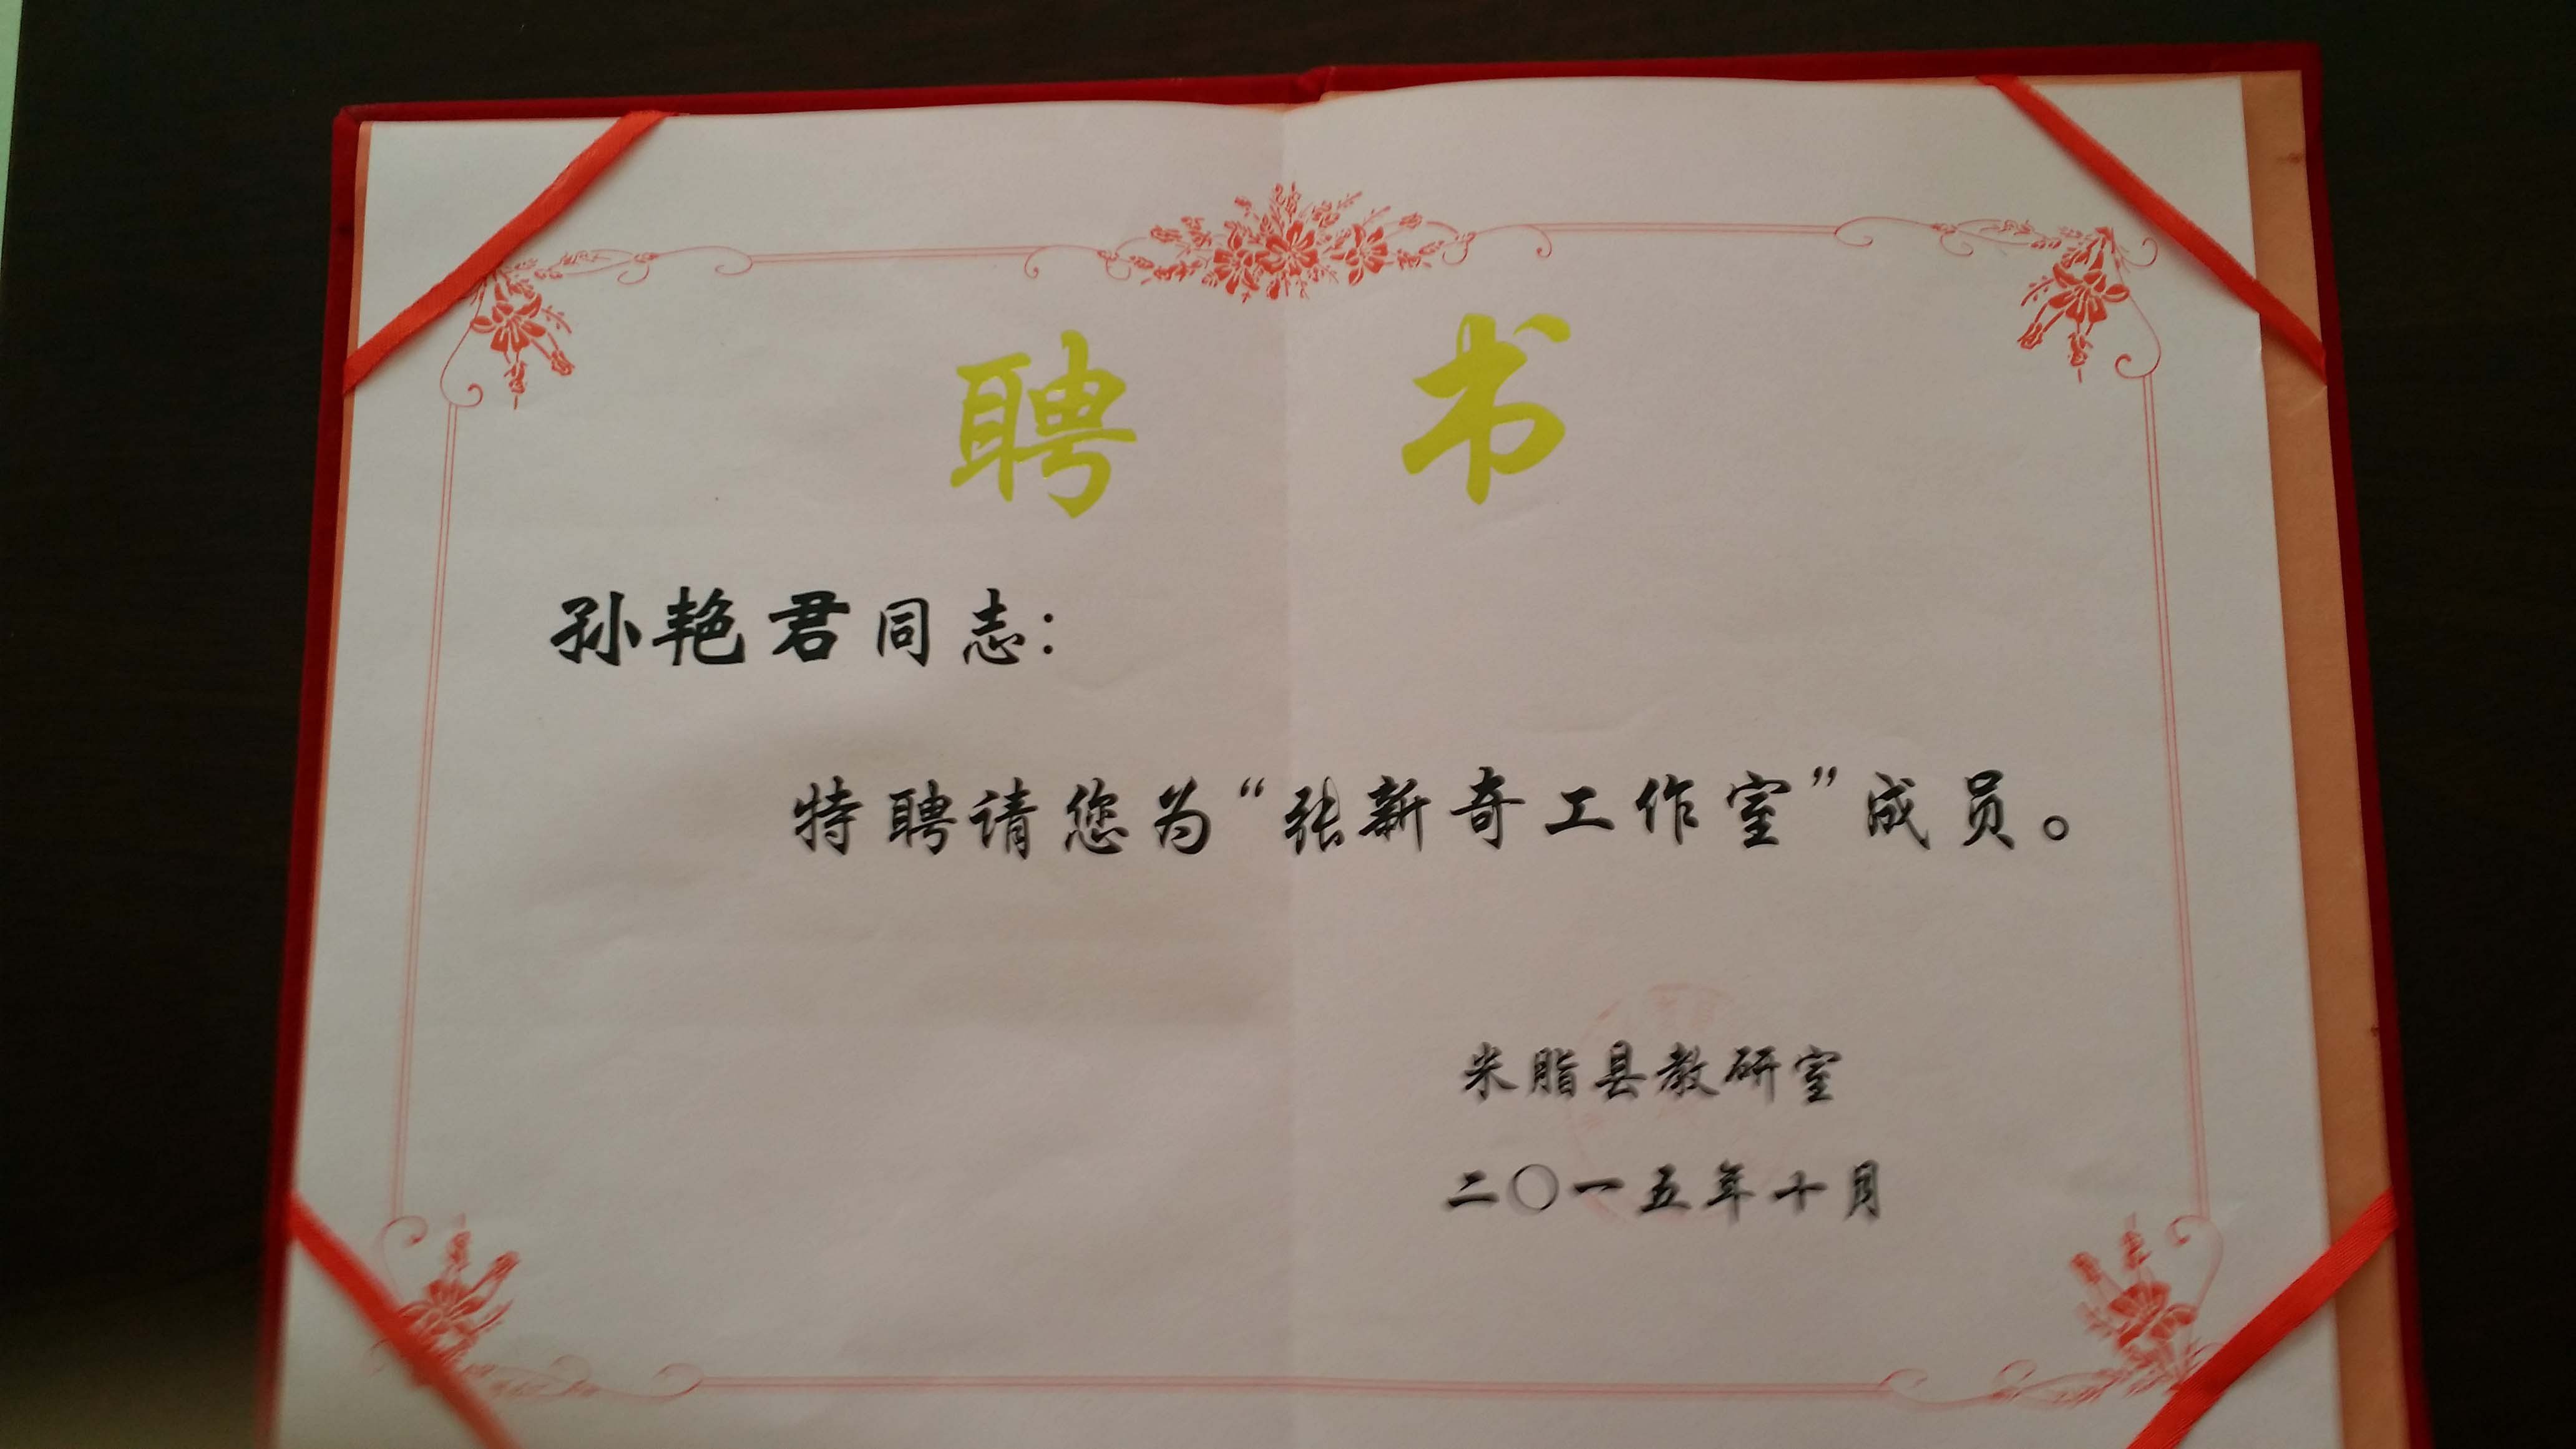 聘书
孙艳君同志：
特聘请您为“张新奇工作室”成员。
米脂县教研室
二〇一五年十月